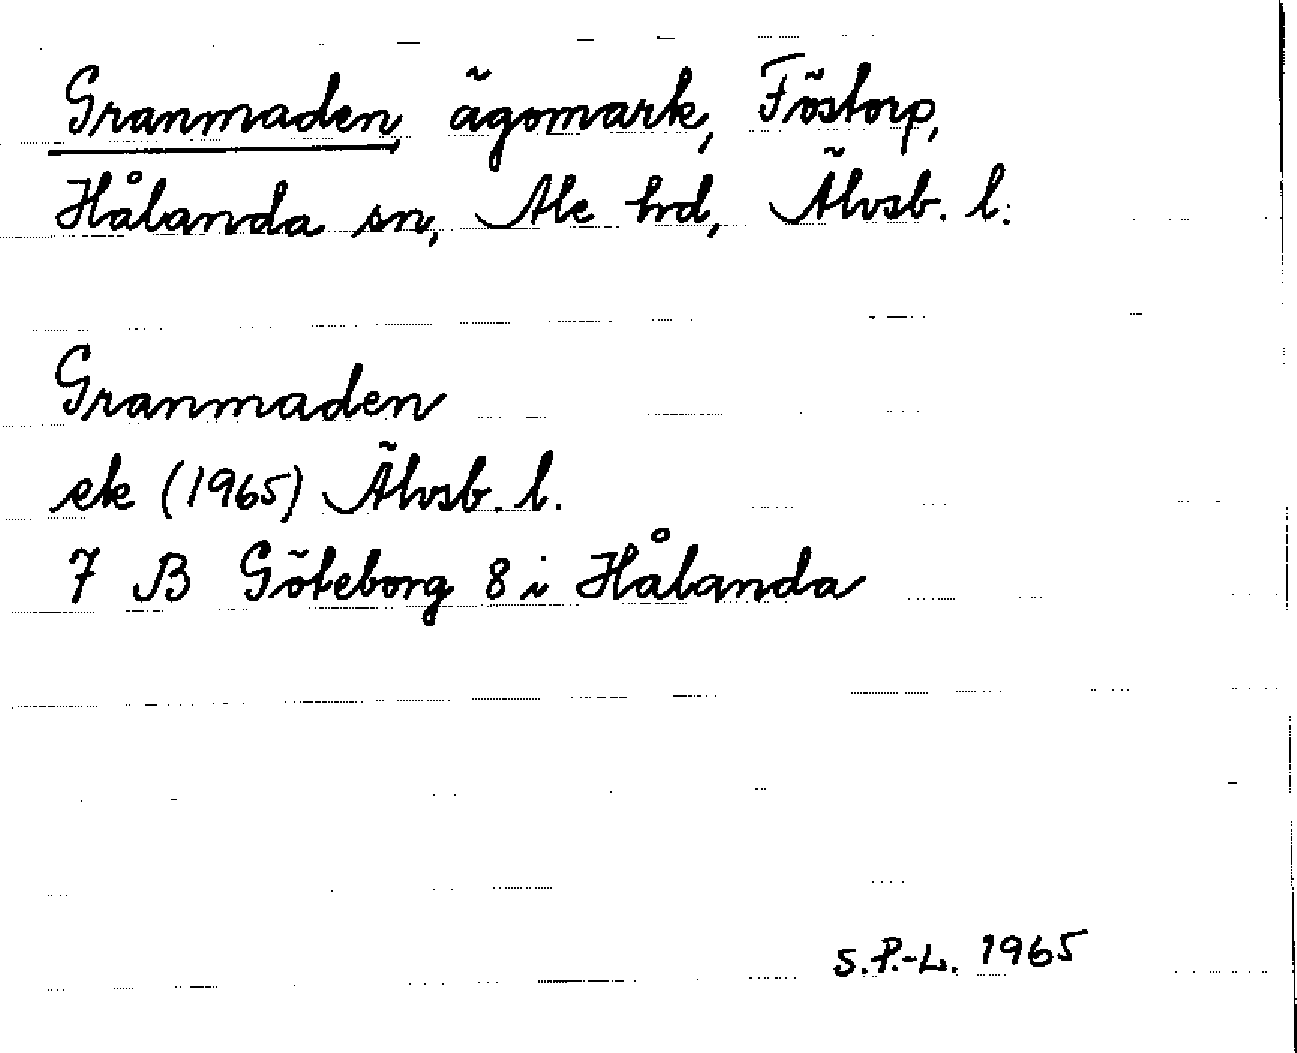 Granmaden ägomark, Föstorp,
Hålanda sn, Ale hrd, Älvsb. l.
Granmaden
ek (1965) Älvsb. l.
7 B Göteborg 8 i Hålanda
S.P.-L. 1965